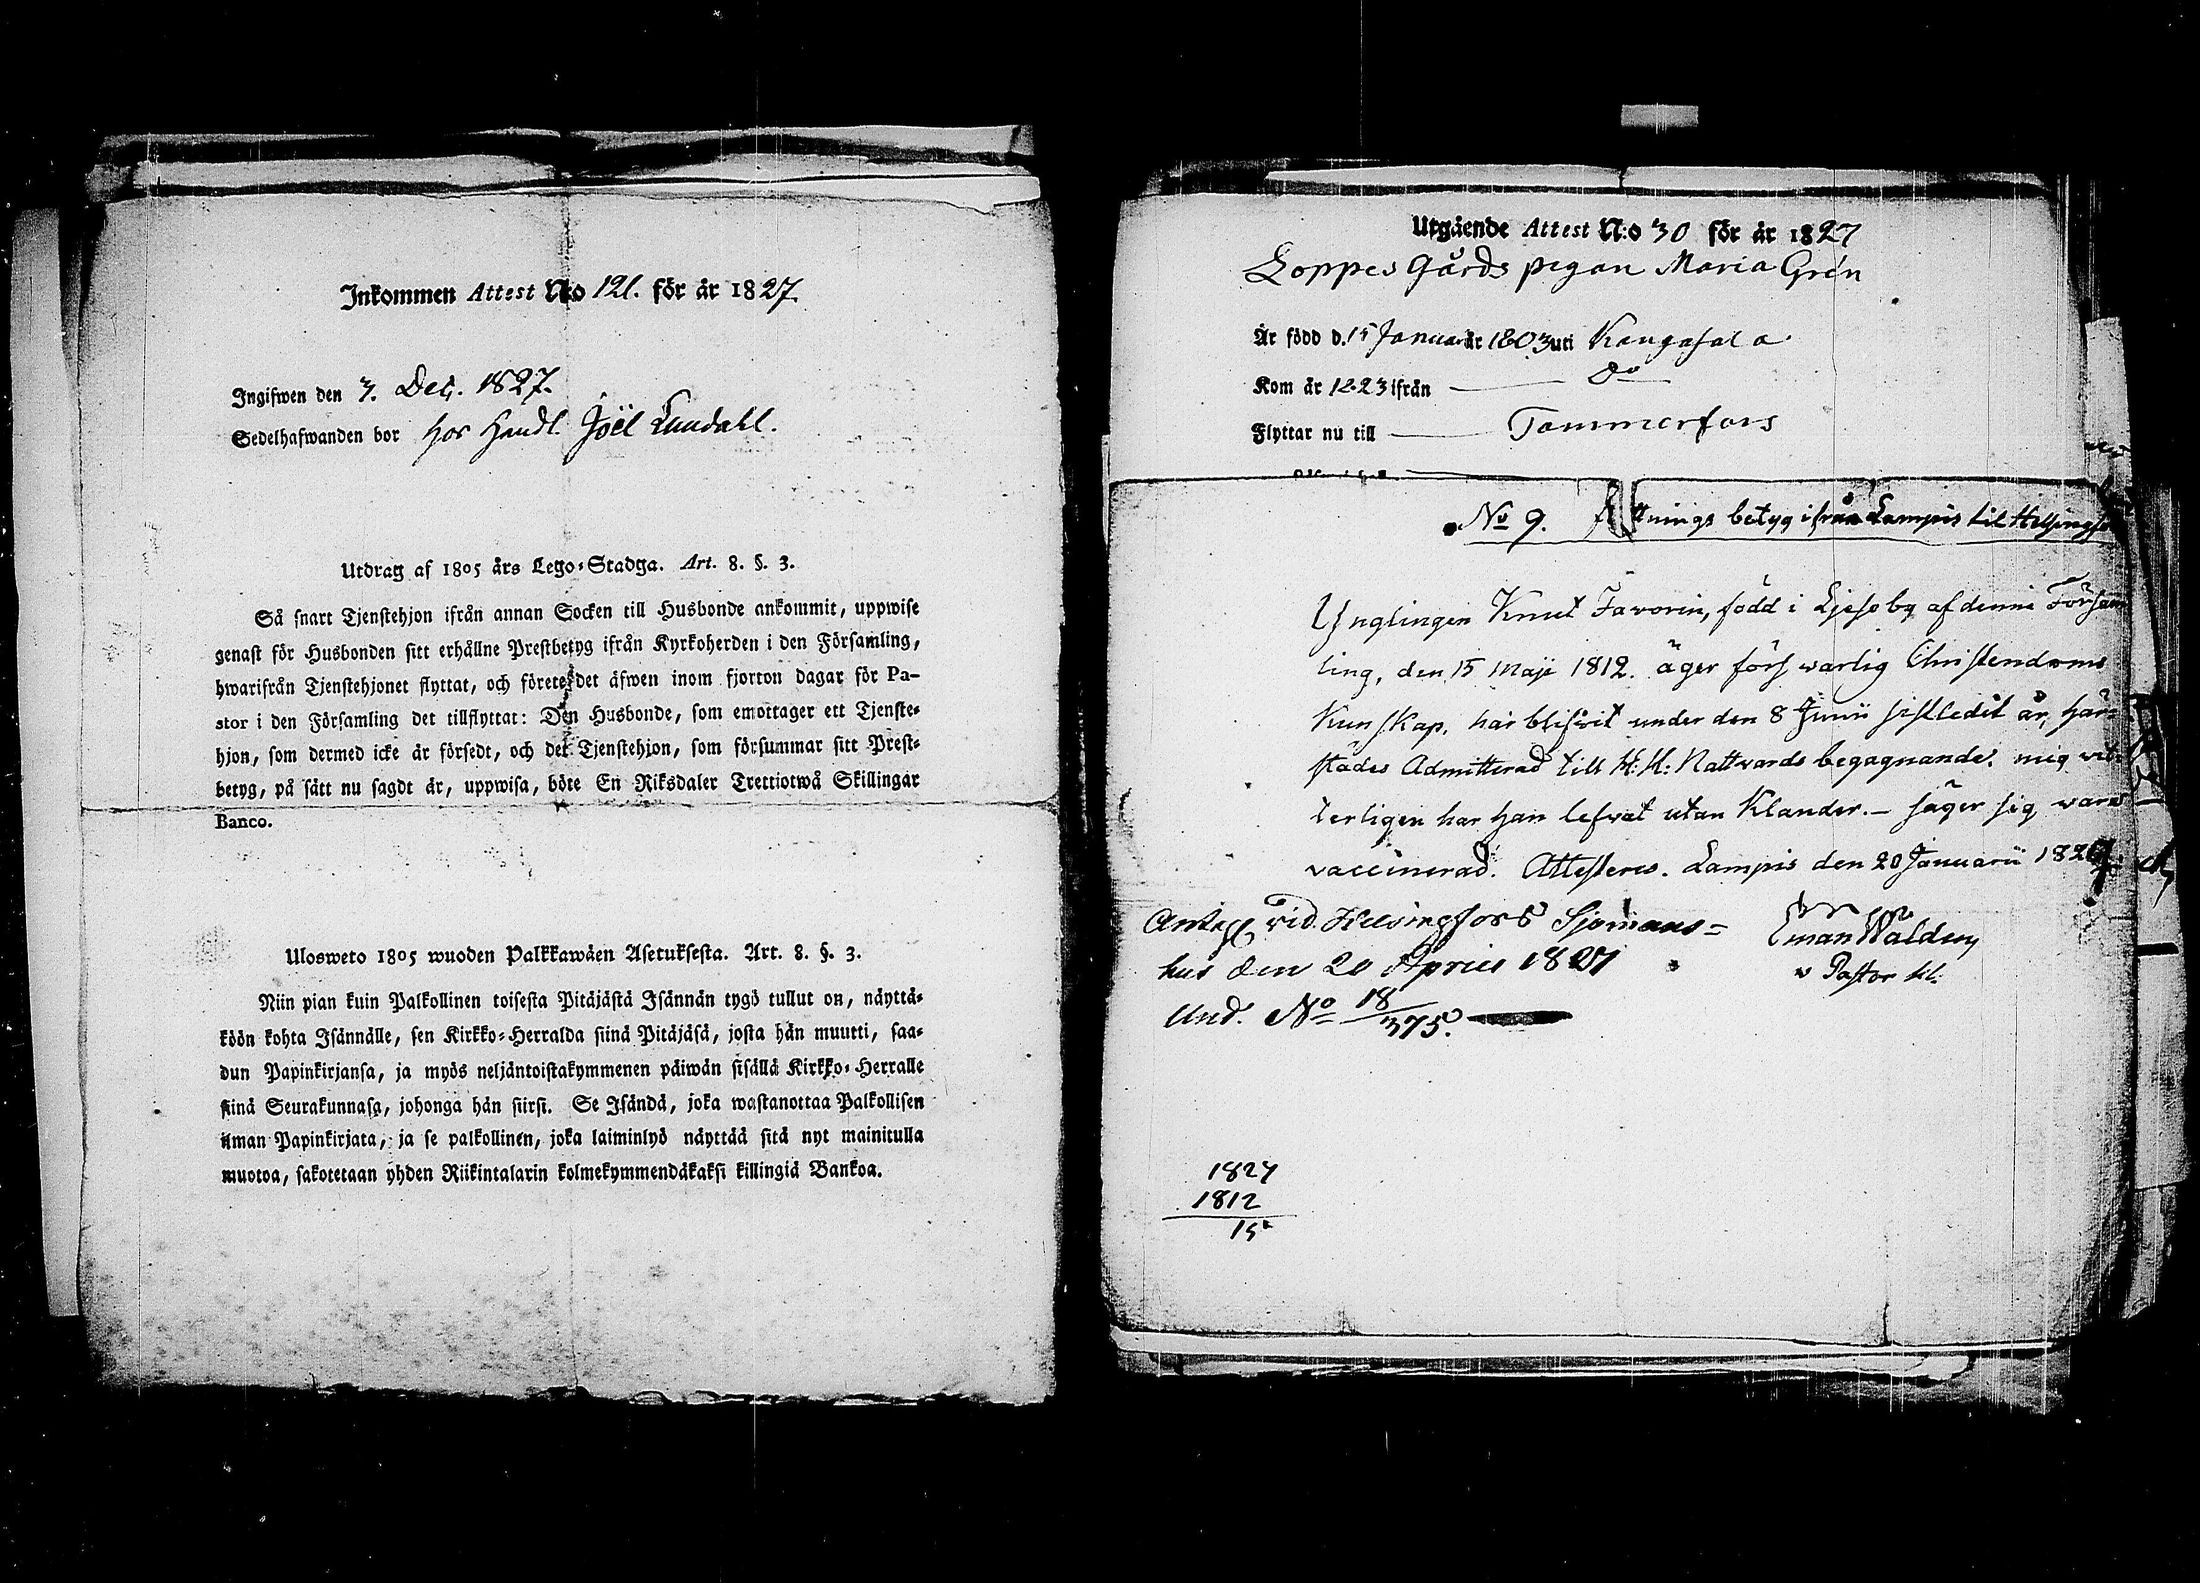 Inkommen Attest N:o 121. för år 1827.
Ingifwen den 3. Dec. 1827.
Sedelhafwanden bor hos Handl. Joël Lundahl.
Utdrag af 1805 års Lego-Stadga. Art. 8. §. 3.
Så snart Tjenstehjon ifrån annan Socken till Husbonde ankommit, uppwise
genast för Husbonden sitt erhållne Prestbetyg ifrån Kyrkoherden i den Församling,
hwarifrån Tjenstehjonet flyttat, och förete det äfwen inom fjorton dagar för Pa-
stor i den Församling det tillflyttat: Den Husbonde, som emottager ett Tjenste-
hjon, som dermed icke är försedt, och det Tjenstehjon, som försummar sitt Prest-
betyg, på sätt nu sagdt är, uppwisa, böte En Riksdaler Trettiotwå Skillingar
Banco.
Ulosweto 1805 wuoden Palkkawäen Asetuksesta. Art. 8. §. 3.
Niin pian kuin Palkollinen toisesta Pitäjästä Isännän tygö tullut on, näyttä-
köön kohta Isännälle, sen Kirkko-Herralda siinä Pitäjäsä, josta hän muutti, saa-
dun Papinkirjansa, ja myös neljäntoistakymmenen päiwän sisällä Kirkko-Herralle
siinä Seurakunnasa, johonga hän siirsi. Se Isändä, joka wastanottaa Palkollisen
ilman Papinkirjata, ja se palkollinen, joka laiminlyö näyttää sitä nyt mainitulla
muotoa, sakotetaan yhden Riikintalarin kolmekymmendäkaksi killingiä Bankoa.
Utgående Attest N:o 30 för år 1827
Loppes Gårds pigan Maria Grén
Är född d. 15 Januari år 1803 uti Kangasala
Kom år 1823 ifrån do
Flyttar nu till Tammerfors
No 9. nings betyg ifrån Lampis til Helsingfo
Ynglingen Knut Favorin, född i Ljeso by af denne Församm
ling, den 15 Maji 1812. äger förswarlig Christendoms
Kunskap, har blifwit under den 8 Junii sistledit år, här-
städes Admitterad till H. H: Nattwards begagnande: mig wet-
terligen har han lefwat utan Klander. – säger sig wara
vaccinerad. Attesteres. Lampis den 20 Januarii 1827.
Antagen vid Helsingfors Sjömans-
hus den 20 April 1827
Und. No 18/375.
Eman Walden
v Pastor
1827
1812
15